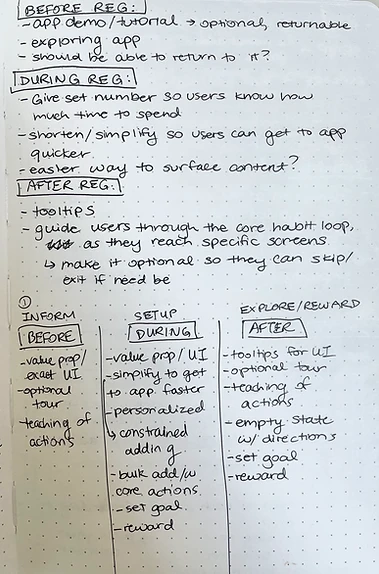 BEFORE REG:
- app demo/tutorial → optional, returnable
- exploring app
- should be able to return to it?
DURING REG:
- Give set number so users know how
much time to spend
- shorten/simplify so users can get to app
quicker
- easier way to surface content?
AFTER REG:
- tooltips
- guide users through the core habit loop,
as they reach specific screens
↳ make it optional so they can skip/
exit if need be
①
INFORM
BEFORE
- value prop/
exact UI
- optional
tour
- teaching of
actions
SETUP
DURING
- value prop/UI
- simplify to get
to app faster
- personalized
↳ constrained
adding
- bulk add/w
core actions
- set goal
- reward
EXPLORE/REWARD
AFTER
- tooltips for UI
- optional tour
- teaching of
actions
- empty state
w/ directions
- set goal
- reward